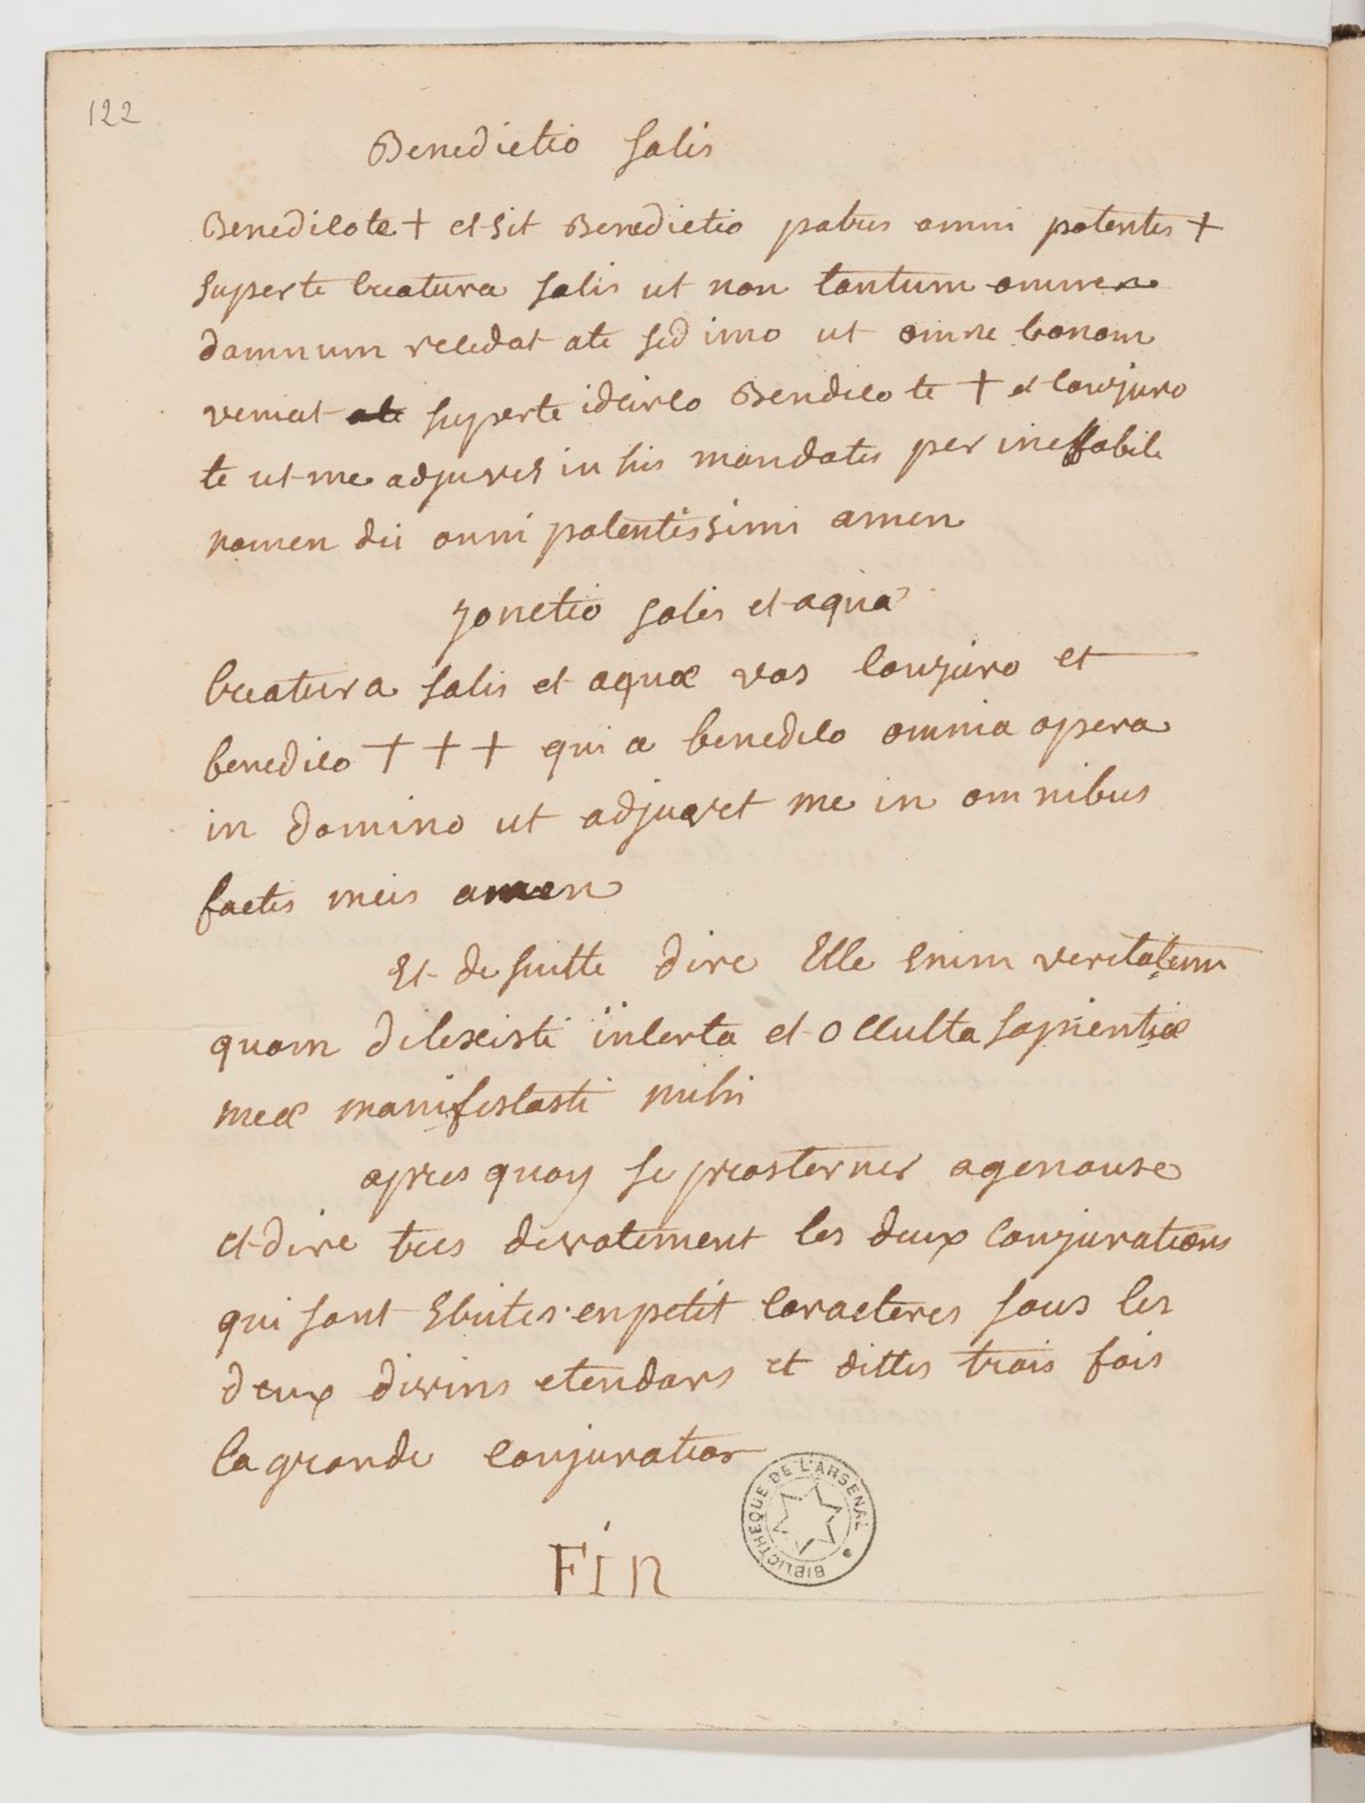 122
Benedictio salis
Benedico te + et sit Benedictio patris omni potentis +
super te creatura salis ut non tantum omnes
damnum recedat a te sed imo ut omne bonom
veniat ate super te idcirco Bendico te + et conjuro
te ut me adjuves in his mandatis per ineffabile
nomen dii omni potentissimi amen
Jonctio salis et aquæ
Creatura salis et aquæ vos conjuro et
benedico + + + qui a benedico omnia opera
in domino ut adjuvet me in omnibus
factis meis amen
Et de suitte dire Elle Enim veritatem
quam dilexisti incerta et occulta sapientiæ
meæ manifestasti mihi
apres quoy se prosterner a genouse
et dire tres devotement les deux conjurations
qui sont Ecrites en petit caracteres sous les
deux divins etendars et dittes trois fois
la grande conjuration
FIN
BIBLIOTHEQUE DE L'ARSENAL